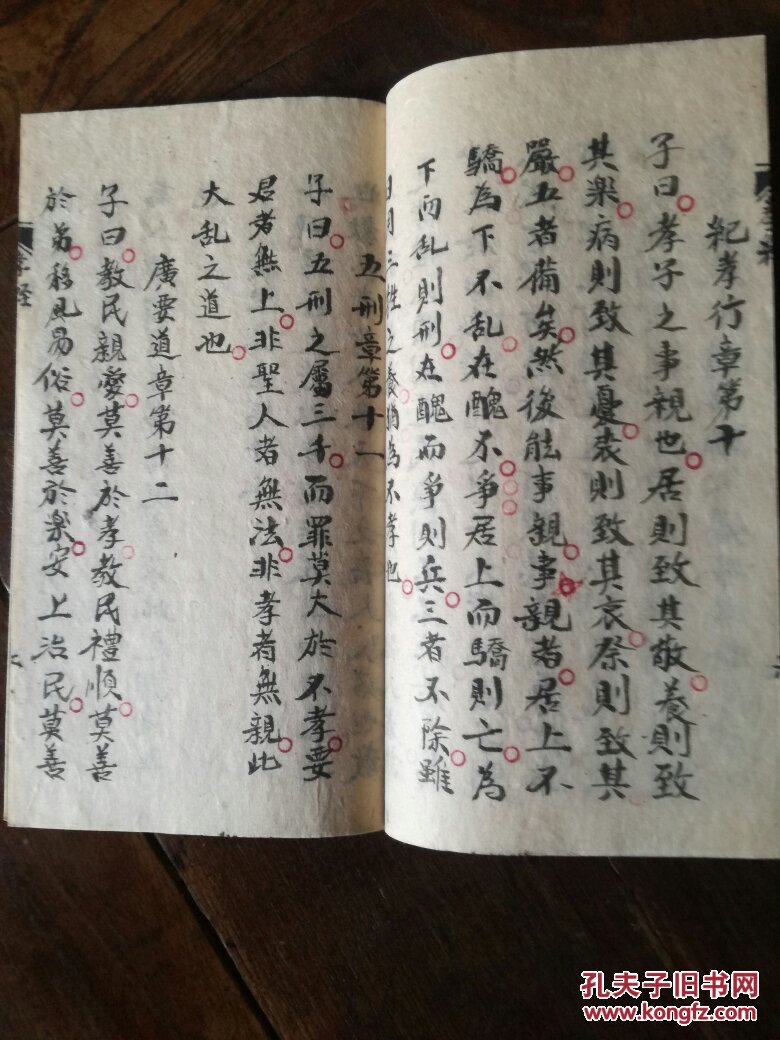 紀孝行章第十
子曰孝子之事親也居則致其敬養則致
其楽病則致其憂䘮則致其哀祭則致其
嚴五者備矣然後能事親事親者居上不
驕為下不乱在醜不爭居上而驕則亡為
下而乱則刑在醜而爭則兵三者不除雖
日用三牲之養猶為不孝也
五刑章第十一
子曰五刑之屬三千而罪莫大於不孝要
君者無上非聖人者無法非孝者無親此
大乱之道也
廣要道章第十二
子曰教民親愛莫善於孝教民禮順莫善
於弟移風易俗莫善於楽安上治民莫善
孝经
孔夫子旧书网
www.kongfz.com